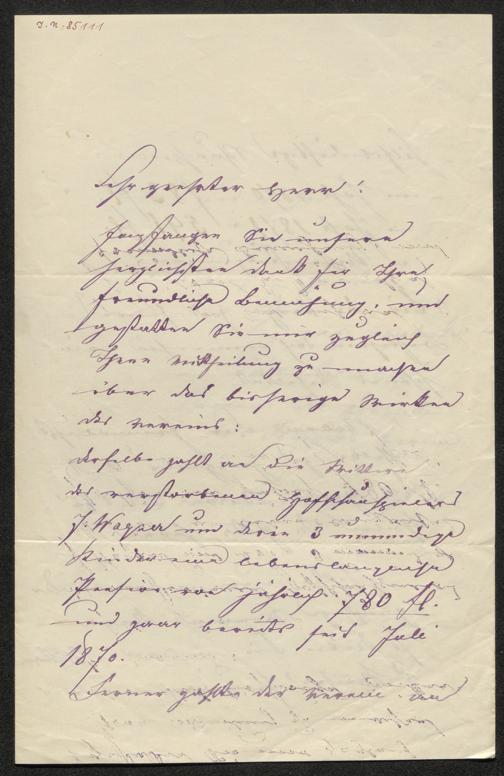 J. N. 85111
Sehr geehrter Herr!
Empfangen Sie unsern
herzlichsten Dank für Ihre
freundliche Bemühung, und
gestatten Sie mir zugleich
Ihnen Mittheilung zu machen
über das bisherige Wirken
des Vereins:
derselbe zahlt an die Wittwe
des verstorbenen Hofschauspielers
J. Wagner und deren 3 unmündige
Kinder eine lebenslängliche
Pension von jährlich 780 fl.
und zwar bereits seit Juli
1870.
Ferner zahlte der Verein an